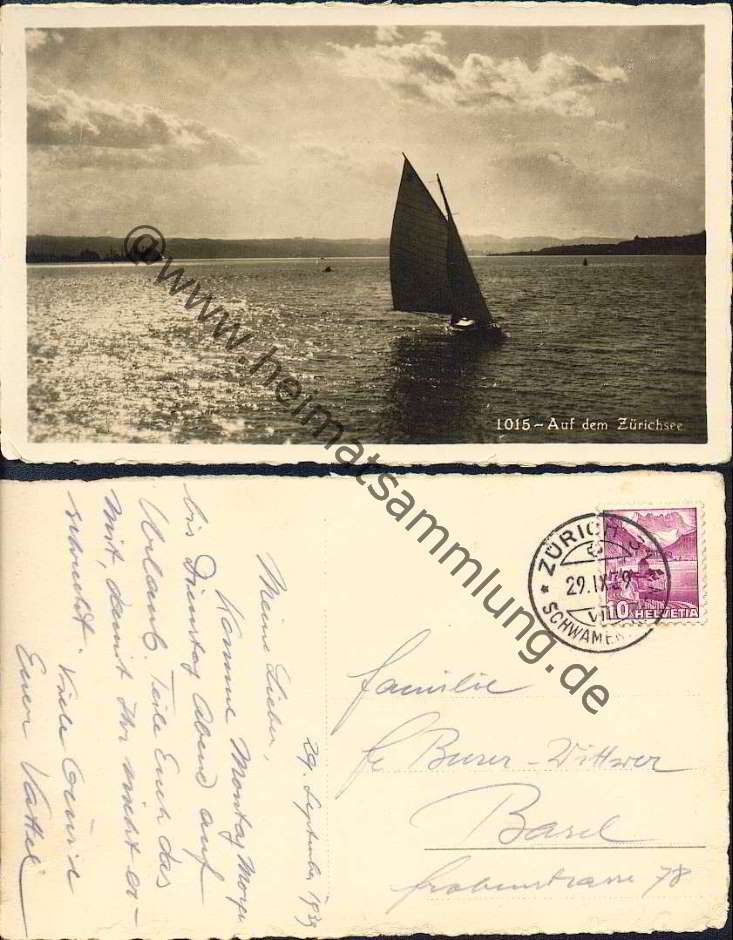 1015 - Auf dem Zürichsee
@www.heimatsammlung.de
ZÜRICH
29.IX.39
SCHWAMEN
10 HELVETIA
29. September 1939
Meine Lieben,
Komme Montag Morgen
bis Dienstag Abend auf
Urlaub. Teile Euch das
mit, damit Ihr nicht er-
schreckt. Viele Grüsse
Euer Vattel
Familie
Buser-Wittwer
Basel
Frobenstrasse 78